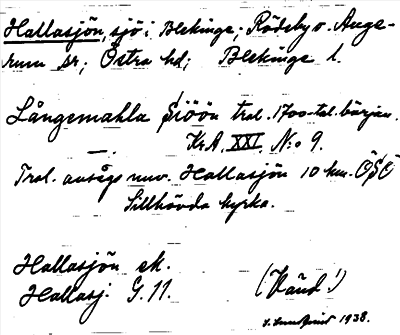 Hallasjön, sjö i Blekinge; Rödeby o. Ange-
rum sr; Östra hd; Blekinge l.
Långemahla Siöön trol. 1700-tal. början.
Kr.A. XXI. No 9.
Trol. avsågs nuv. Hallasjön 10 km. ÖSÖ
Sillhövda kyrka.
Hallasjön ek.
Hallasj. G. 11. (Känd!)
1938.